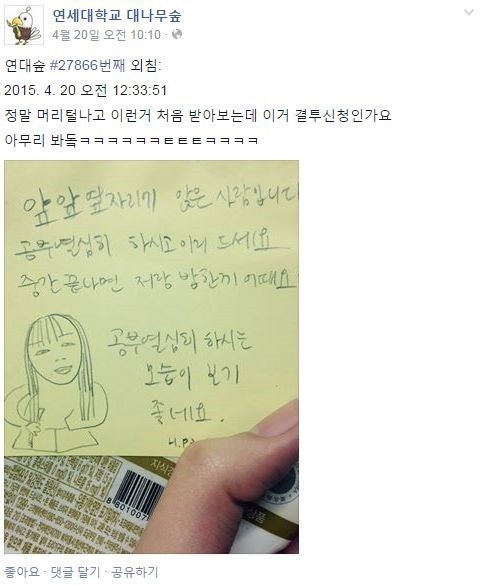 연세대학교 대나무숲
4월 20일 오전 10:10 ·
연대숲 #27866번째 외침:
2015. 4. 20 오전 12:33:51
정말 머리털나고 이런거 처음 받아보는데 이거 결투신청인가요
아무리 봐돜ㅋㅋㅋㅋㅋㅌㅌㅌㅋㅋㅋㅋ
앞 앞 옆자리에 앉은 사람입니다
공부열심히 하시고 이거 드세요
중간 끝나면 저랑 밥한끼 어때요
공부열심히 하시는
모습이 보기
좋네요.
지식경
8801007
상품
좋아요 · 댓글 달기 · 공유하기